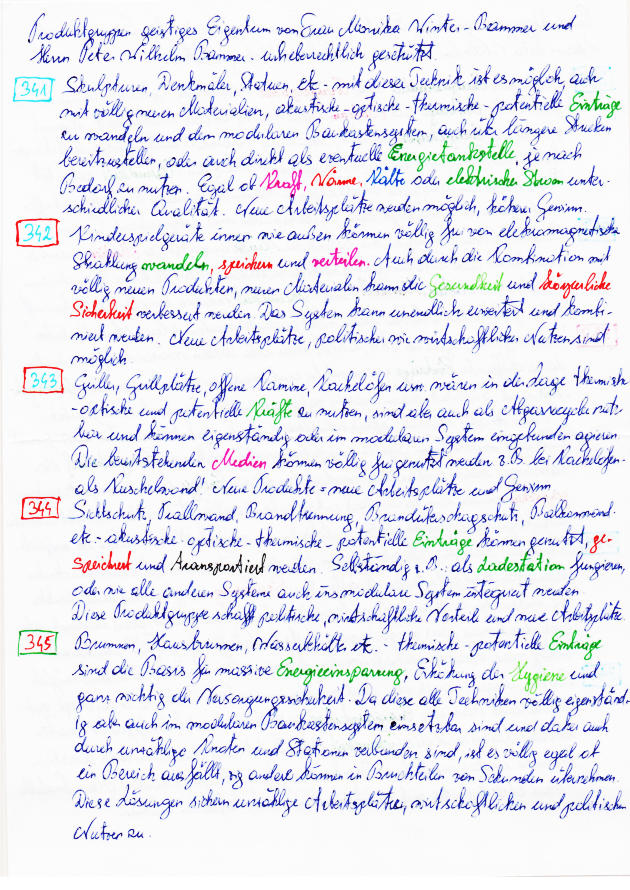 Produktgruppen geistiges Eigentum von Frau Monika Winter-Brammer und
Herrn Peter Wilhelm Brammer - urheberrechtlich geschützt.
341 Skulpturen, Denkmäler, Statuen, etc - mit dieser Technik ist es möglich auch
mit völlig neuen Materialien, akustische-optische-thermische-potentielle Einträge
zu wandeln und dem modularen Baukastensystem, auch über längere Strecken
bereitzustellen, oder auch direkt als eventuelle Energietankstelle, je nach
Bedarf zu nutzen. Egal ob Kraft, Wärme, Kälte oder elektrischer Strom unter-
schiedlicher Qualität. Neue Arbeitsplätze werden möglich, höherer Gewinn.
342 Kinderspielgeräte innen wie außen können völlig frei von elektromagnetische
Strahlung wandeln, speichern und verteilen. Auch durch die Kombination mit
völlig neuen Produkten, neuen Materialien kann die Gesundheit und körperliche
Sicherheit verbessert werden. Das System kann unendlich erweitert und kombi-
niert werden. Neue Arbeitsplätze, politischer wie wirtschaftlicher Nutzen sind
möglich.
343 Griller, Grillplätze, offene Kamine, Kachelöfen usw wären in der Lage thermisch
-optische und potentielle Kräfte zu nutzen, sind aber auch als Abgasrecycle nutz-
bar und können eigenständig oder im modularen System eingebunden agieren.
Die bereitstehenden Medien können völlig frei genutzt werden z.B. bei Kachelöfen-
als Kuschelwand! Neue Produkte = neue Arbeitsplätze und Gewinn
344 Sichtschutz, Prallwand, Brandtrennung, Brandüberschlagschutz, Balkonwand
etc - akustische-optische-thermische-potentielle Einträge können genutzt, ge-
speichert und transportiert werden. Selbständig z.B. als Ladestation fungieren,
oder wie alle anderen Systeme auch ins modulare System integriert werden
Diese Produktgruppe schafft politische, wirtschaftliche Vorteile und neue Arbeitsplätze
345 Brunnen, Hausbrunnen, Wasserbehälter etc. - thermische-potentielle Einträge
sind die Basis für massive Energieeinsparung, Erhöhung der Hygiene und
ganz wichtig der Versorgungssicherheit. Da diese alle Techniken völlig eigenständ-
ig aber auch im modularen Baukastensystem einsetzbar sind und dabei auch
durch unzählige Knoten und Stationen verbunden sind, ist es völlig egal ob
ein Bereich ausfällt, zig andere können in Bruchteilen von Sekunden übernehmen.
Diese Lösungen sichern unzählige Arbeitsplätze, wirtschaftlichen und politischen
Nutzen zu.